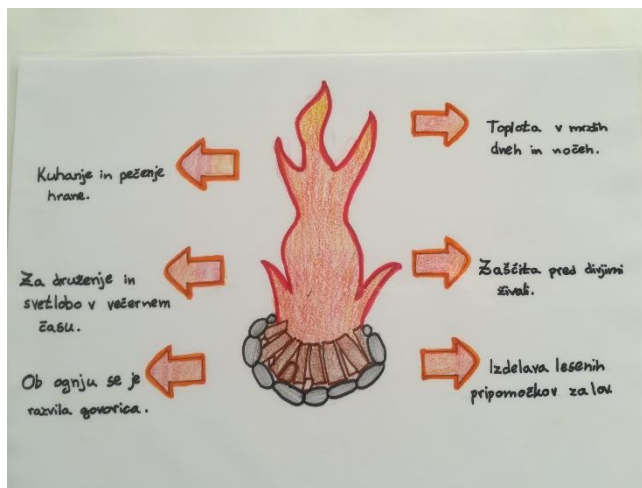 Kuhanje in pečenje
hrane.
Za druženje in
svetlobo v večernem
času.
Ob ognju se je
razvila govorica.
Toplota v mrzlih
dneh in nočeh.
Zaščita pred divjimi
živali.
Izdelava lesenih
pripomočkov za lov.